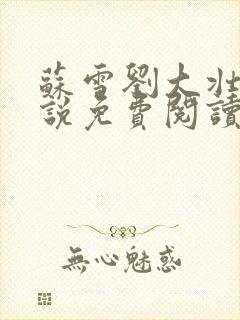 蘇雪劉大壯
說免費閱讀
無心魅惑